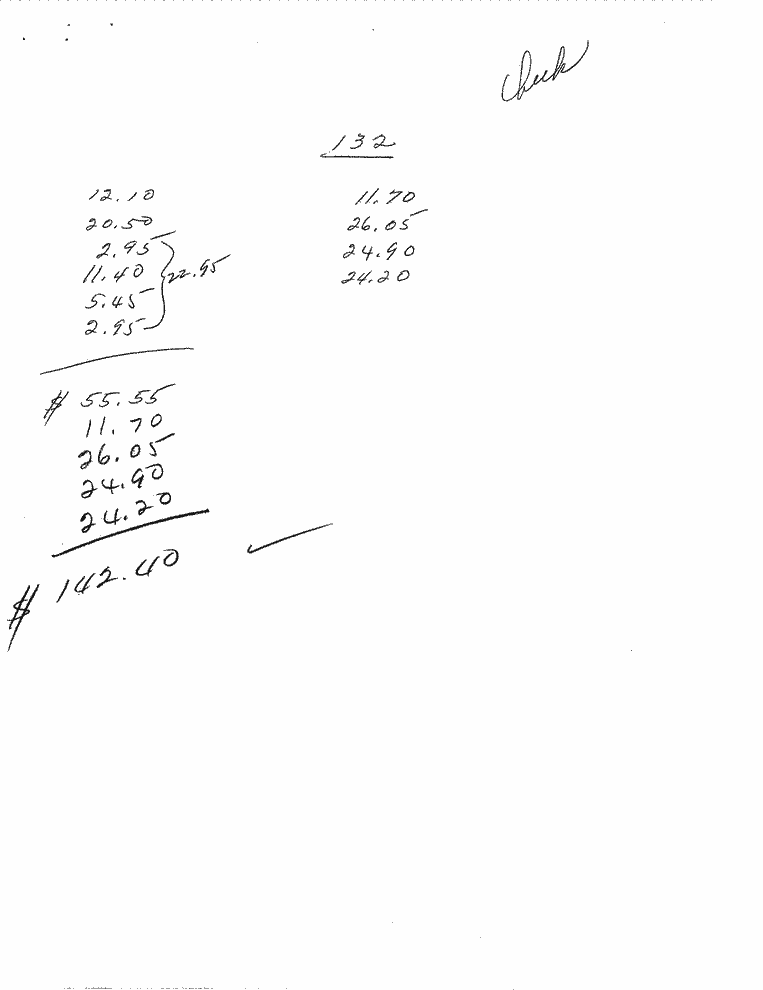 Check
132
12.10
20.50
2.95
11.40
5.45
2.95
22.95
11.70
26.05
24.90
24.20
$ 55.55
11.70
26.05
24.90
24.20
$ 142.40 ✓